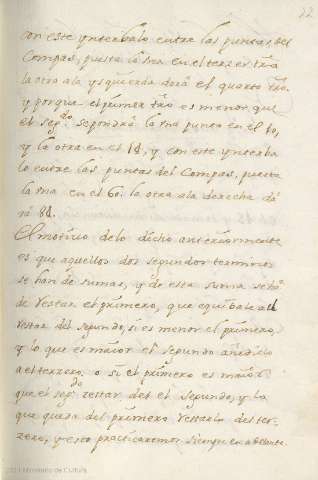 22
con este ynterbalo entre las puntas, del
Compas, puesta la vna en el terzer trõ
la otra a la ysquierda dara el quarto trõ.
y porque el primer trõ es menor que
el segdo. se pondrá la vna punta en el 40,
y la otra en el 18, y con este ynterba
lo entre las puntas del Compas, puesta
la vna en el 60. la otra a la derecha da
rá 82.
El motivo de lo dicho anteriormente
es que aquellos dos segundos terminos
se han de sumar, y de esta suma seha
de restar el primero, que equibale all
restar del segundo, si es menor el primero,
y lo que es maior el segundo añadirlo
a el terzero, o si el primero es maior
que el segdo restar del el segundo, y lo
que queda del primero restarlo del ter-
zero, y esto practicaremos siempre en adelante.
Ministerio de Cultura